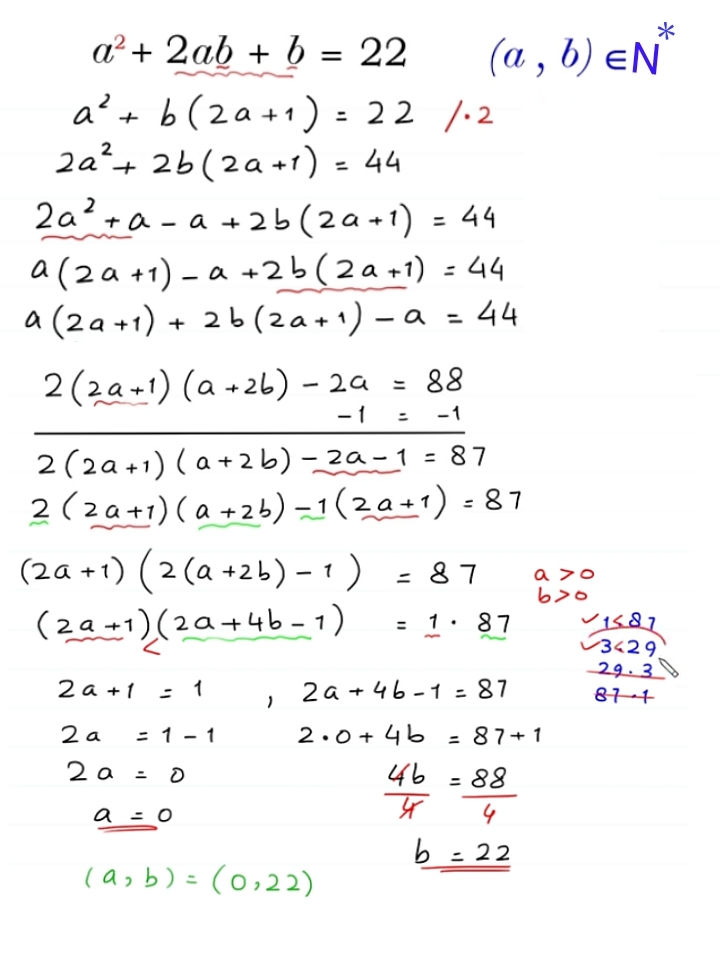 a² + 2ab + b = 22 (a , b) ∈ N*
a² + b(2a+1) = 22 /·2
2a² + 2b(2a+1) = 44
2a² + a − a + 2b(2a+1) = 44
a(2a+1) − a + 2b(2a+1) = 44
a(2a+1) + 2b(2a+1) − a = 44
2(2a+1)(a+2b) − 2a = 88
−1 = −1
2(2a+1)(a+2b) − 2a − 1 = 87
2(2a+1)(a+2b) − 1(2a+1) = 87
(2a+1)(2(a+2b) − 1) = 87
a > 0
b > 0
(2a+1)(2a+4b−1) = 1 · 87
<
✓ 1 < 87
✓ 3 < 29
29 · 3
87 · 1
2a+1 = 1 , 2a+4b−1 = 87
2a = 1 − 1 2·0 + 4b = 87+1
2a = 0 4b/4 = 88/4
a = 0 b = 22
(a, b) = (0, 22)